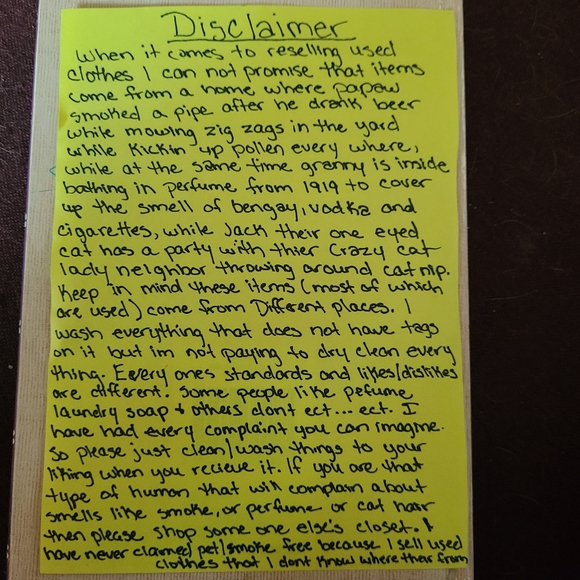 Disclaimer
When it comes to reselling used
clothes I can not promise that items
come from a home where papaw
smoked a pipe after he drank beer
while mowing zig zags in the yard
while kickin up pollen every where,
while at the same time granny is inside
bathing in perfume from 1919 to cover
up the smell of bengay, vodka and
cigarettes, while Jack their one eyed
cat has a party with thier crazy cat
lady neighbor throwing around catnip.
Keep in mind these items (most of which
are used) come from Different places. I
wash everything that does not have tags
on it but im not paying to dry clean every
thing. Every ones standards and likes/dislikes
are different. Some people like pefume
laundry soap & others dont ect... ect. I
have had every complaint you can imagine.
So please just clean/wash things to your
liking when you recieve it. If you are that
type of human that will complain about
smells like smoke, or perfume or cat hair
then please shop some one else's closet. I
have never claimed pet/smoke free because I sell used
clothes that I dont know where their from